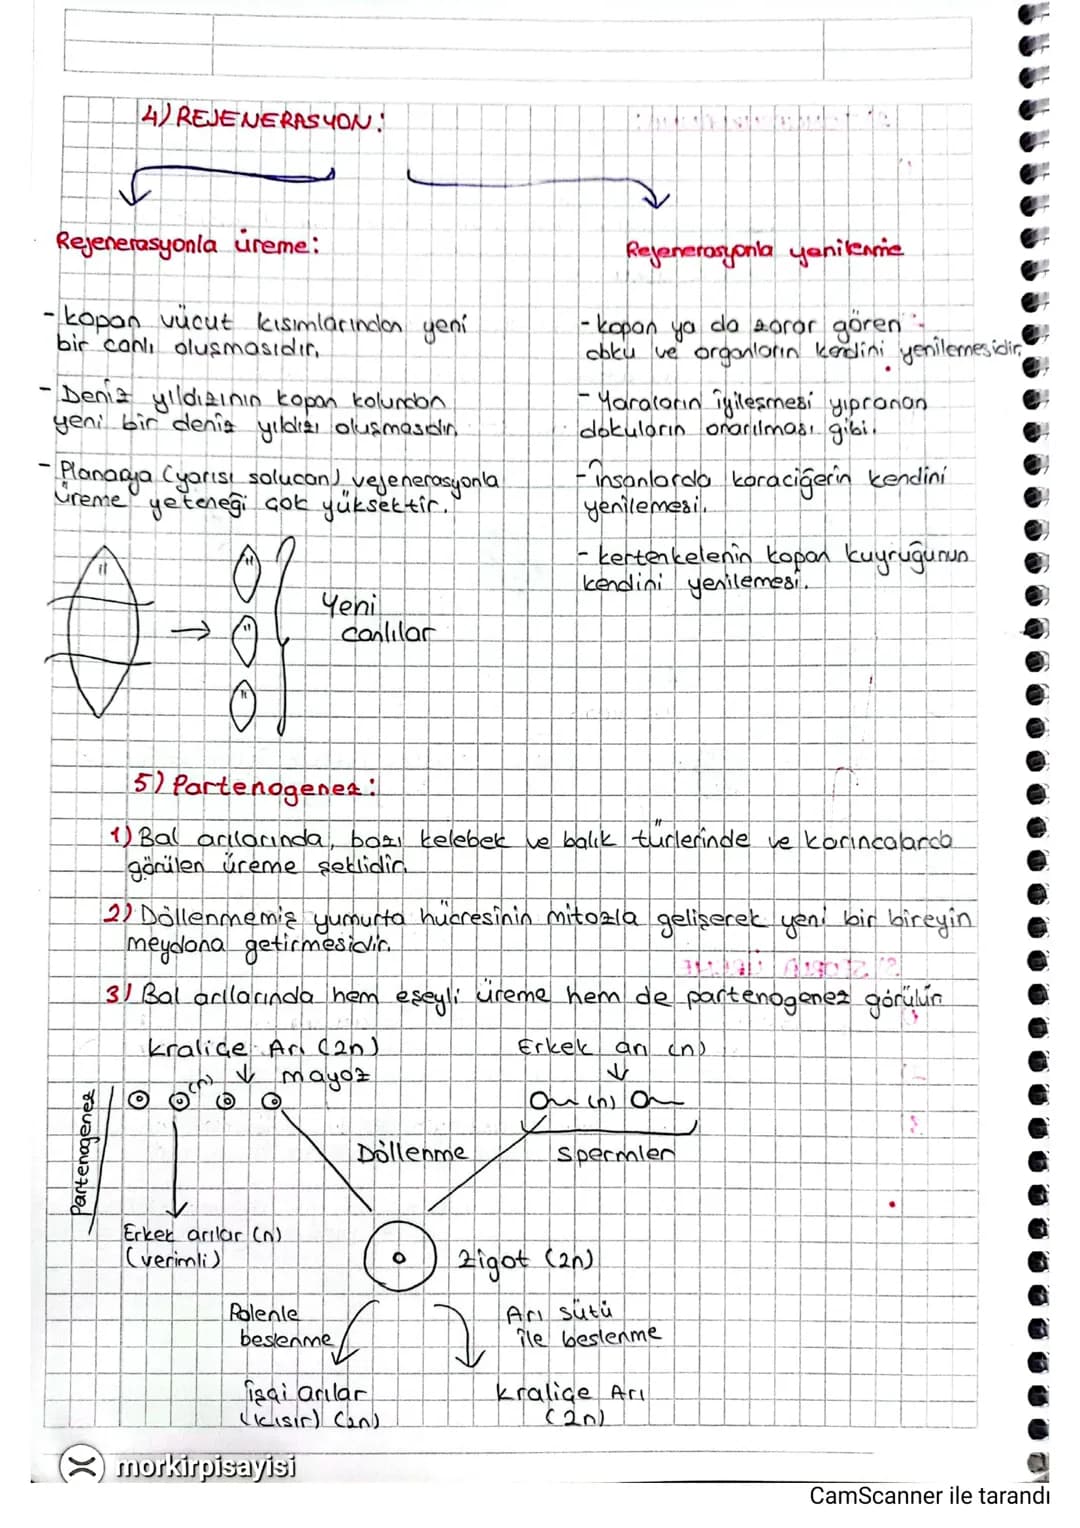 4) REJENERASYON:
Rejenerasyonla üreme:
- kopan vücut kısımlarından yeni
bir canlı oluşmasıdır.
- Deniz yıldızının kopan kolundan
yeni bir deniz yıldızı oluşmasıdır.
- Planarya (yarısı solucan) rejenerasyonla
üreme yeteneği çok yüksektir.
Yeni
canlılar
Rejenerasyonla yenilenme
- kopan ya da zarar gören
doku ve organların kendini yenilemesidir.
- Yaraların iyileşmesi yıpranan
dokuların onarılması gibi.
- İnsanlarda karaciğerin kendini
yenilemesi.
- kertenkelenin kopan kuyruğunun
kendini yenilemesi.
5) Partenogenez:
1) Bal arılarında, bazı kelebek ve balık türlerinde ve karıncalarda
görülen üreme şeklidir.
2) Döllenmemiş yumurta hücresinin mitozla gelişerek yeni bir bireyin
meydana getirmesidir.
3) Bal arılarında hem eşeyli üreme hem de partenogenez görülür
kraliçe Arı (2n)
Erkek arı (n)
(n) mayoz
(n)
Partenogenez
Döllenme
spermler
Erkek arılar (n)
(verimli)
Zigot (2n)
Polenle
beslenme
Arı sütü
ile beslenme
İşçi arılar
(kısır) (2n)
kraliçe Arı
(2n)
morkirpisayisi
CamScanner ile tarandı